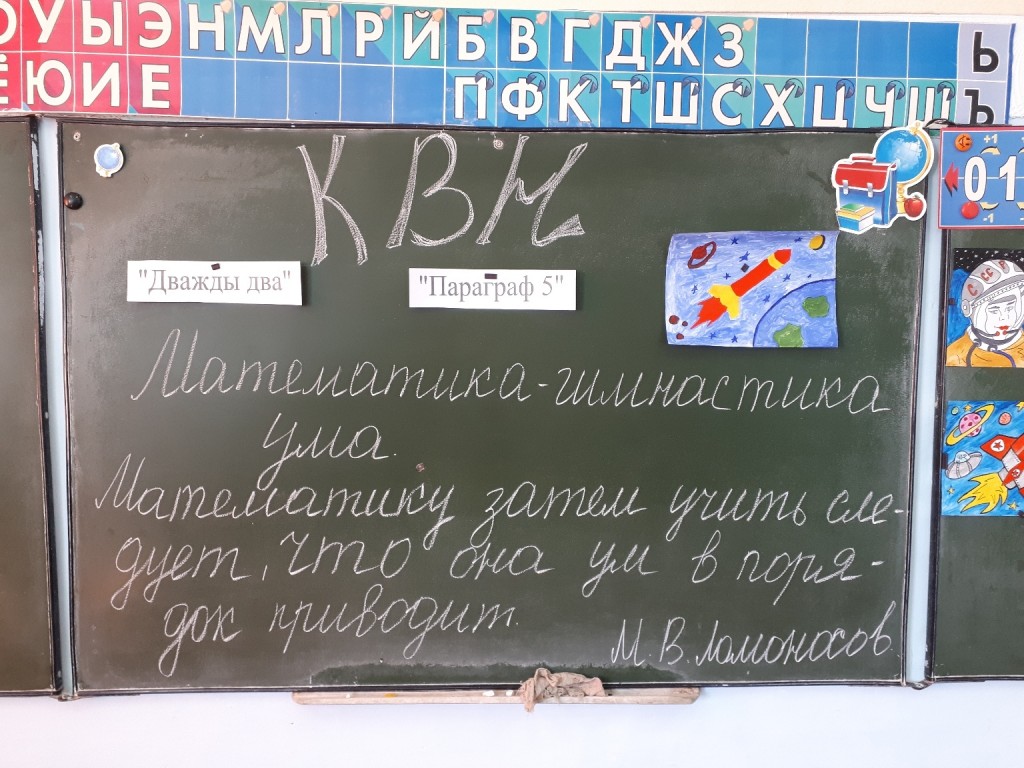 ОУЫЭНМЛРЙБВГДЖЗ Ь
ЁЮИЕ ПФКТШСХЦЧЩЪ
КВН
"Дважды два" "Параграф 5"
+1
01
-1
СССР
Математика-гимнастика
ума.
Математику затем учить сле-
дует, что она ум в поря-
док приводит.
М.В. Ломоносов